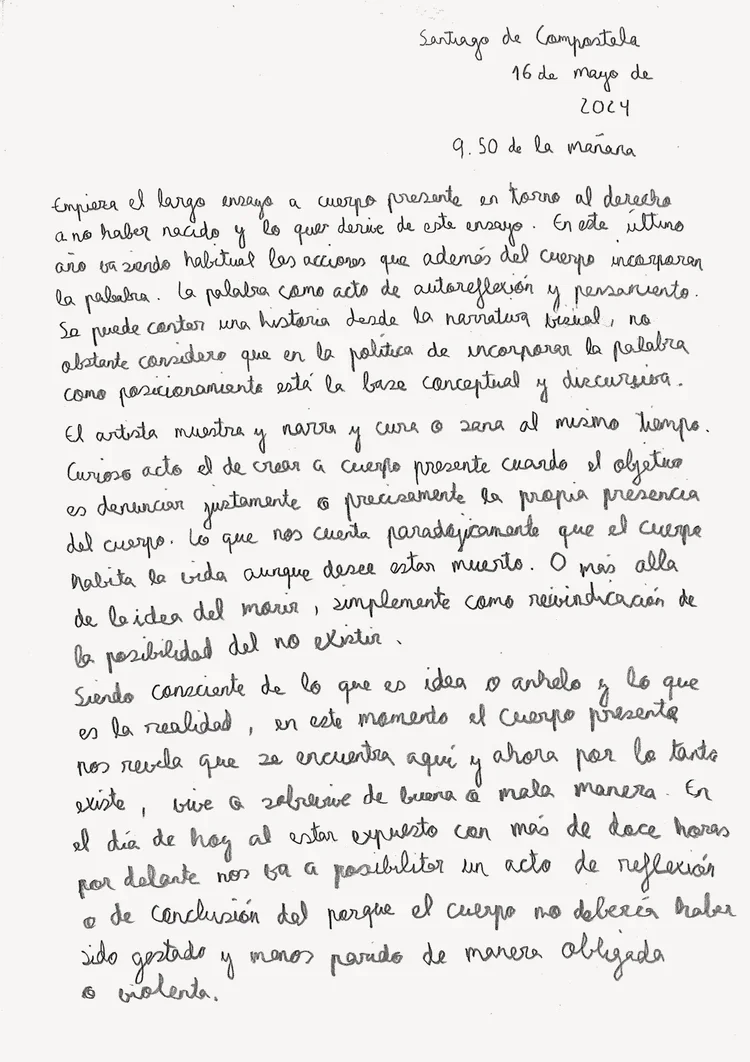 Santiago de Compostela
16 de mayo de
2024
9.50 de la mañana
Empieza el largo ensayo a cuerpo presente en torno al derecho
a no haber nacido y lo que derive de este ensayo. En este último
año va siendo habitual las acciones que además del cuerpo incorporan
la palabra. La palabra como acto de autoreflexión y pensamiento.
Se puede contar una historia desde la narrativa visual, no
obstante considero que en la política de incorporar la palabra
como posicionamiento está la base conceptual y discursiva.
El artista muestra y narra y cura o sana al mismo tiempo.
Curioso acto el de crear a cuerpo presente cuando el objetivo
es denunciar justamente o precisamente la propia presencia
del cuerpo. Lo que nos cuenta paradójicamente que el cuerpo
habita la vida aunque desee estar muerto. O más alla
de la idea del morir, simplemente como reivindicación de
la posibilidad del no existir.
Siendo consciente de lo que es idea o anhelo y lo que
es la realidad, en este momento el cuerpo presente
nos revela que se encuentra aquí y ahora por lo tanto
existe, vive o sobrevive de buena o mala manera. En
el día de hoy al estar expuesto con más de doce horas
por delante nos va a posibilitar un acto de reflexión
o de conclusión del porque el cuerpo no debería haber
sido gestado y menos parido de manera obligada
o violenta.